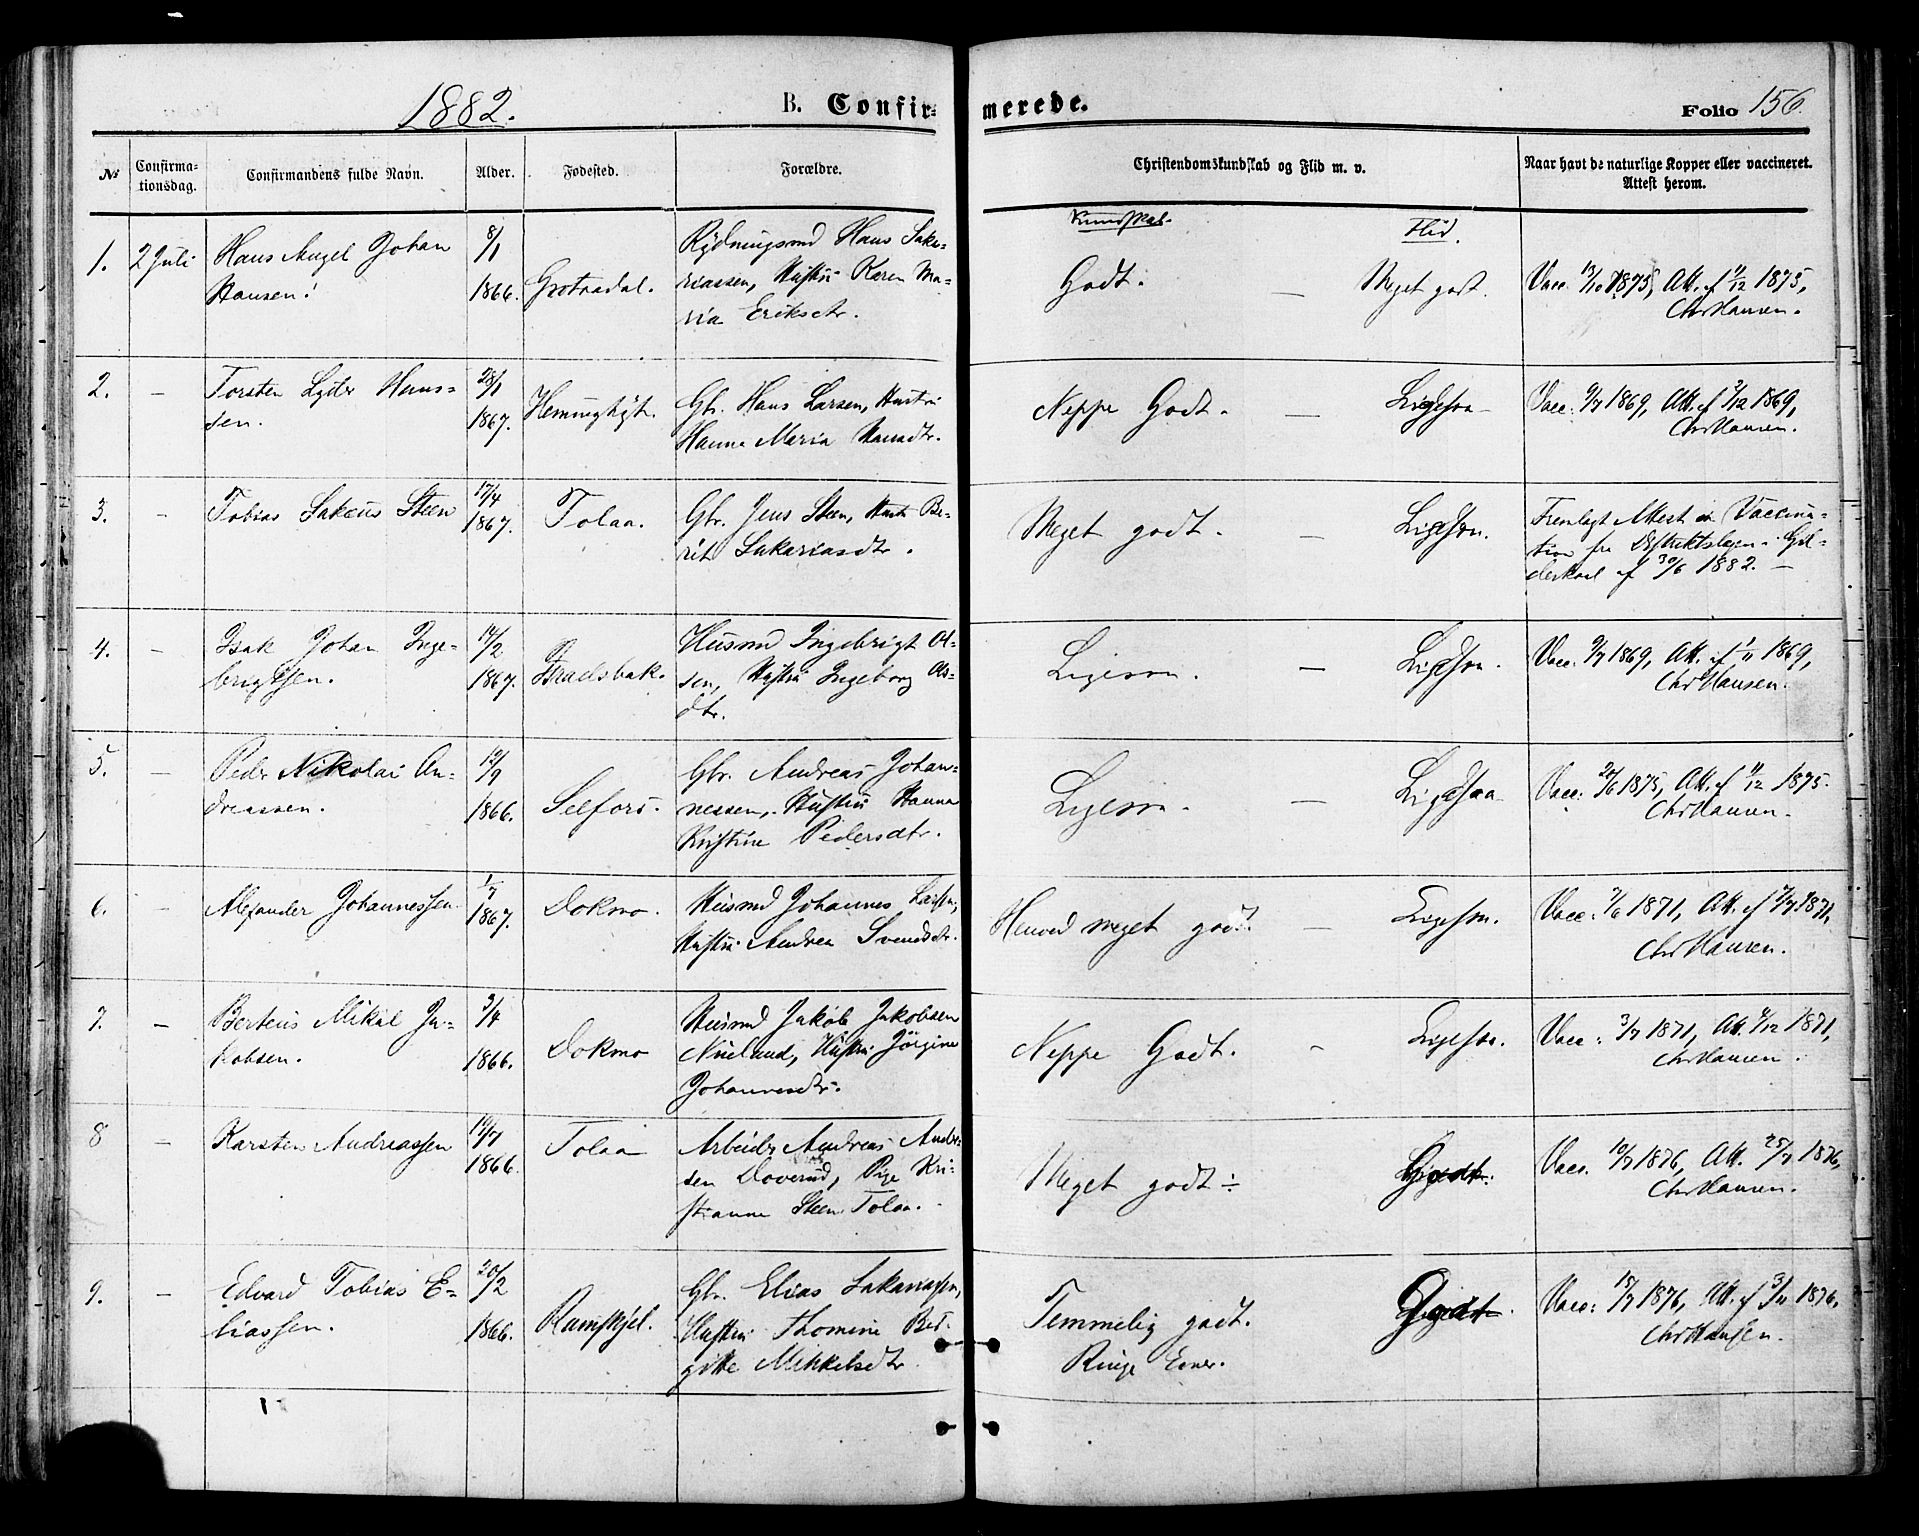 1882.
B. Confir-
merede.
Folio 156.
No
Confirma-
tionsdag.
Confirmandens fulde Navn.
Alder.
Fødested.
Forældre.
Christendomskundskab og Flid m. v.
Naar havt de naturlige Kopper eller vaccineret.
Attest herom.
Kundskab.
Flid.
1. 2 Juli Hans Angel Johan
Hansen.
8/1
1866.
Grotaadal.
Rydningsmd Hans Saka-
riassen, Hustru Karen Ma-
ria Eriksdtr.
Godt. — Meget godt.
Vacc. 13/10 1875, Att. af 11/12 1875,
Chr Hansen.
2. — Torsten Lyder Hans-
sen.
28/1
1867.
Gbr. Hans Larsen, Hustru
Hanna Maria Hansdtr.
Neppe Godt. — Ligesaa
Vacc. 9/7 1869, Att. af 3/12 1869,
Chr Hansen.
3. — Tobias Sakæus Steen
17/4
1867.
Tolaa.
Gbr. Jens Steen, Hustr Be-
rit Sakariasdtr.
Meget godt. — Ligesaa.
Fremlagt Attest om Vaccina-
tion fra Distriktslægen i Gil-
deskaal af 30/6 1882. —
4. — Isak Johan Inge-
brigtsen.
14/2
1867.
Bradsbak.
Husmd Ingebrigt Ol-
sen, Hustru Ingeborg Ols-
dtr.
Ligesaa. — Ligesaa.
Vacc. 9/7 1869, Att. af 1/11 1869,
Chr Hansen.
5. — Peder Nikolai An-
dreassen.
12/9
1866.
Selfors.
Gbr. Andreas Johan-
nessen, Hustru Hanna
Kristine Pedersdtr.
Ligesaa. — Ligesaa
Vacc. 20/6 1875, Att. af 11/12 1875.
Chr Hansen.
6. — Alexander Johannessen.
1/7
1867.
Dokmo.
Husmd Johannes Larsen,
Hustru Andrea Svendsdtr.
Henved meget godt. — Ligesaa.
Vacc. 7/6 1871, Att. af 17/7 1871,
Chr Hansen.
7. — Berteus Mikal Ja-
kobsen.
3/4
1866.
Dokmo
Husmd Jakob Jakobsen
Hustru Jørgine
Johannesdtr.
Neppe Godt. - Ligesaa.
Vacc. 3/7 1871, Att. 9/12 1871,
Chr Hansen.
8 — Karsten Andreassen
19/7
1866.
Tolaa
Arbeider Andreas Andr-
sen Doverud, Pige Kri-
stianne Steen Tolaa.
Meget godt ÷ Godt.
Vacc. 10/7 1876, Att. 25/7 1876,
Chr Hansen.
9. — Edvard Tobias E-
liassen.
20/2
1866.
Ramskjel.
Gbr. Elias Sakariassen,
Hustru Thomine Ber-
gitte Mikkelsdtr
Temmelig godt. Godt.
Ringe Evner.
Vacc. 15/7 1876, Att. af 3/11 1876,
Chr Hansen.